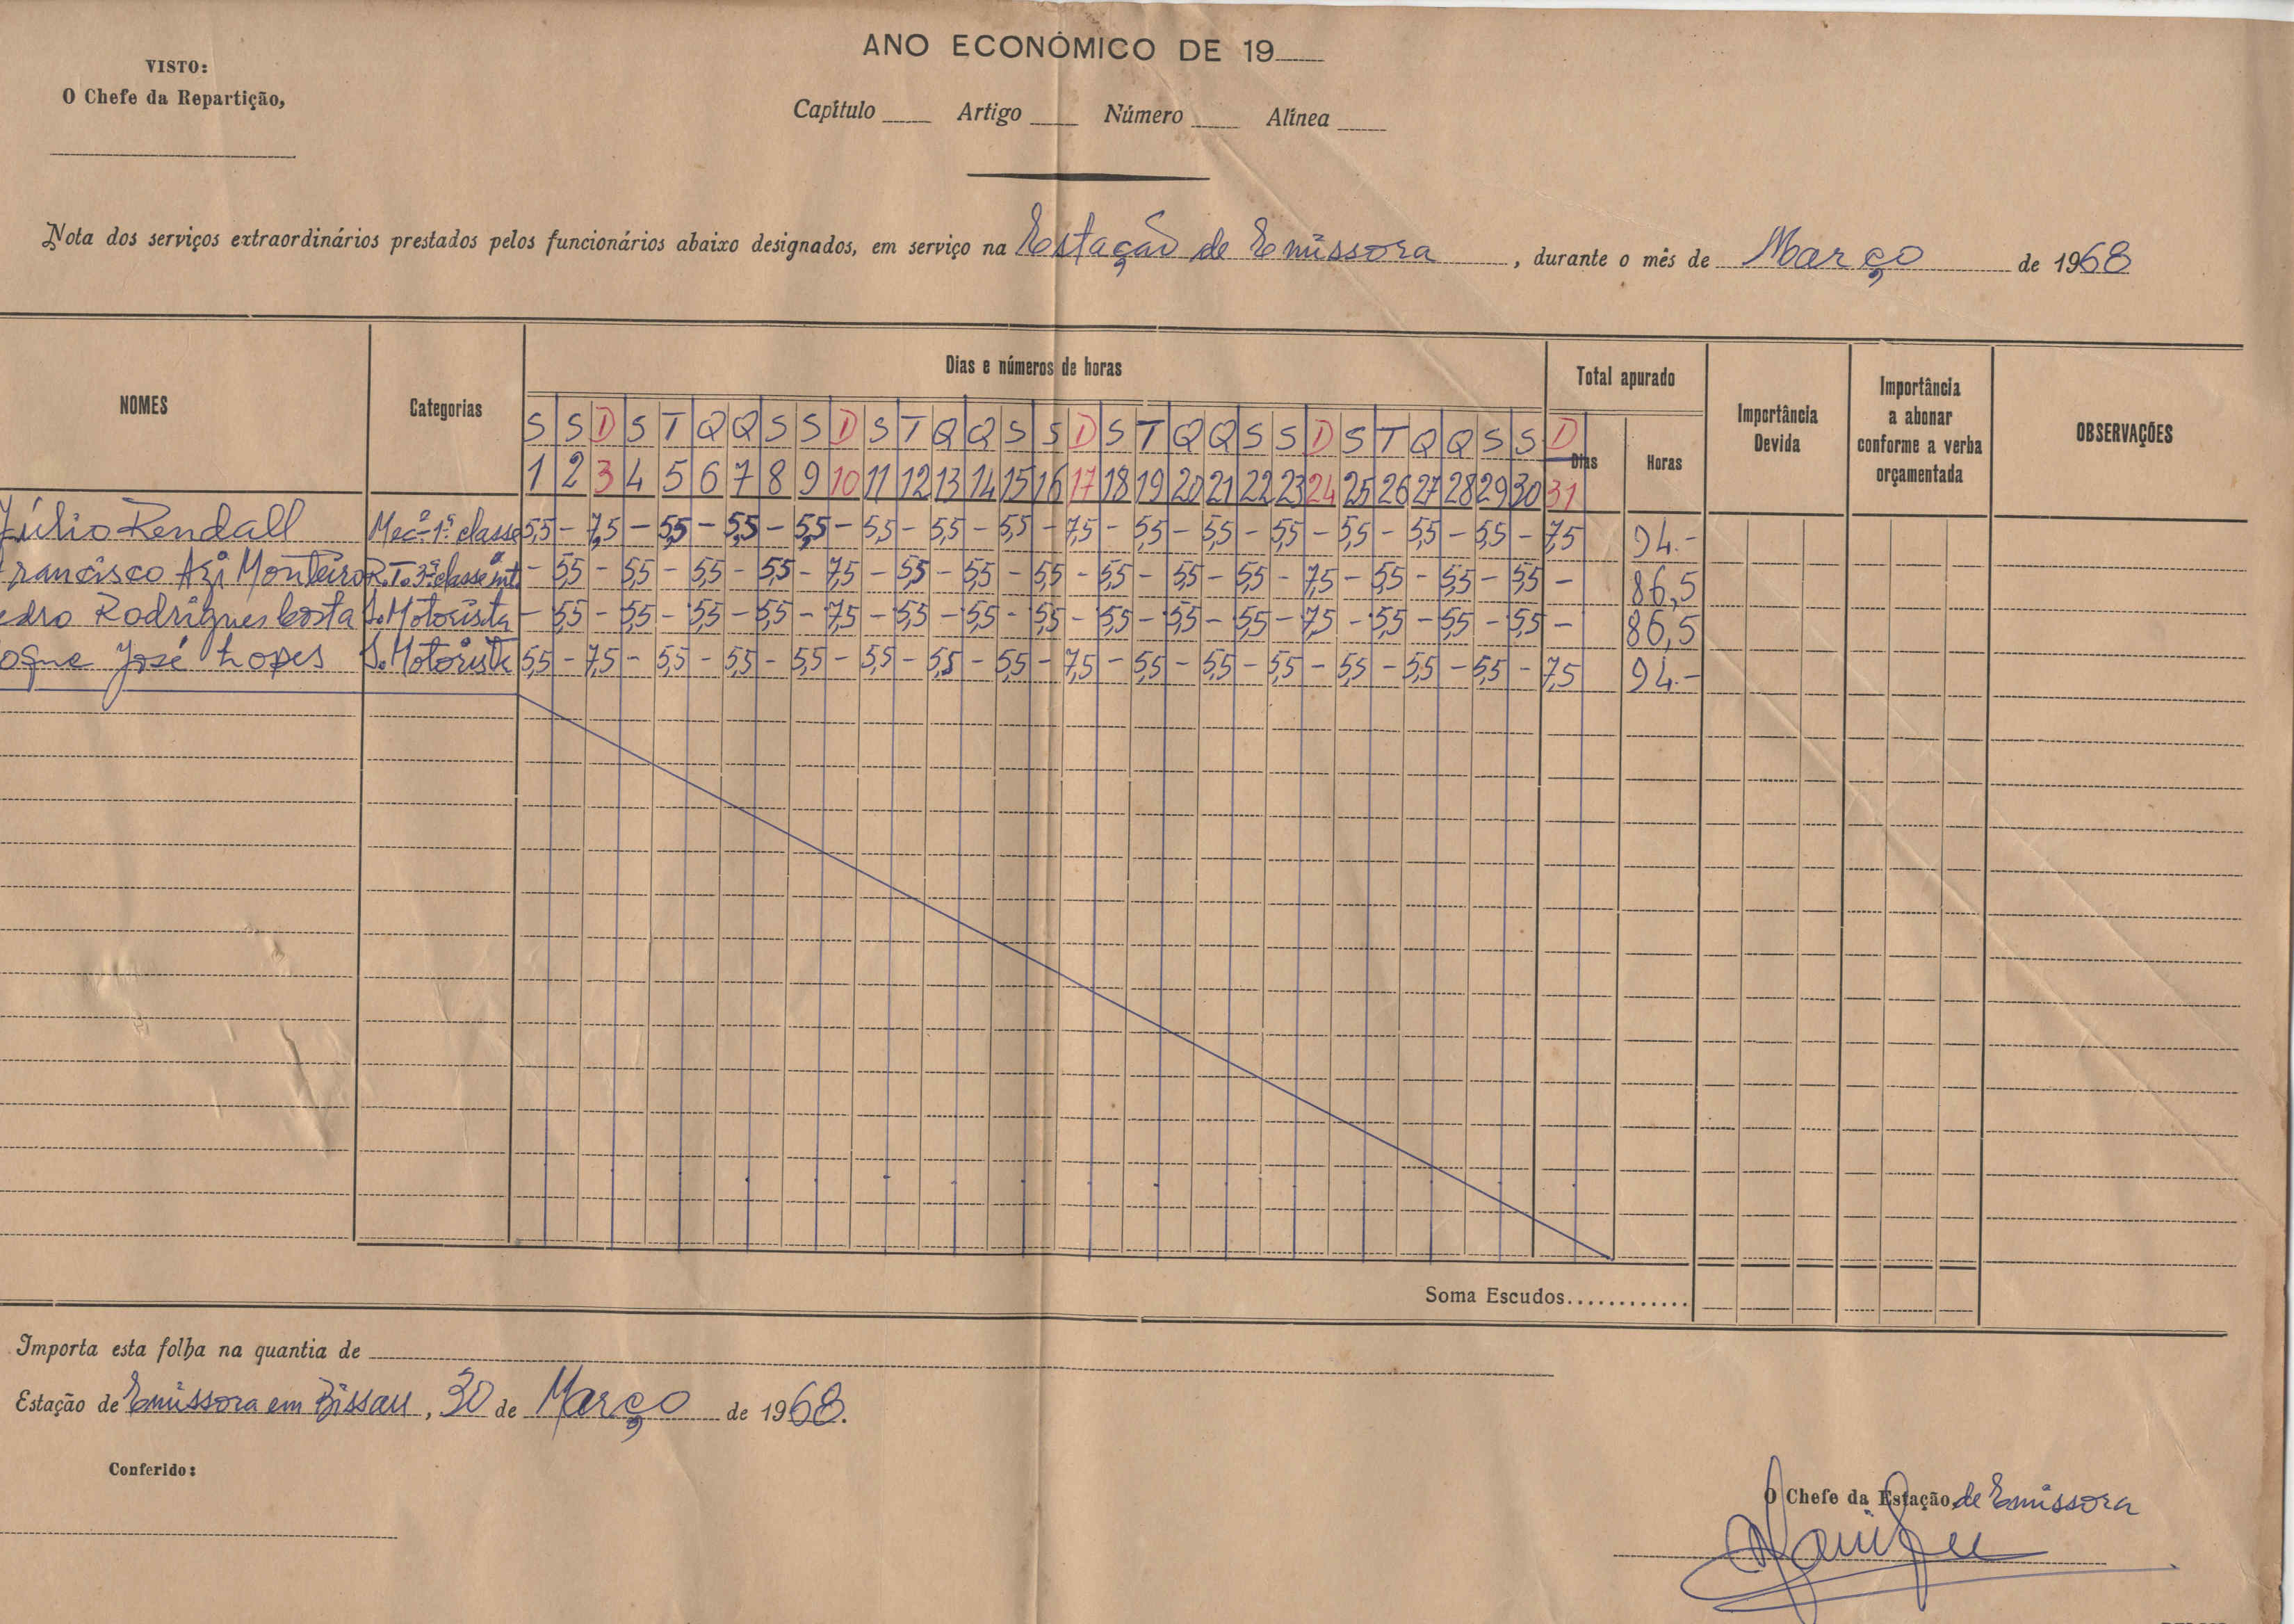 VISTO:
O Chefe da Repartição,
ANO ECONÓMICO DE 19
Capítulo Artigo Número Alínea
Nota dos serviços extraordinários prestados pelos funcionários abaixo designados, em serviço na Estação de Emissora, durante o mês de Março de 1968
NOMES Categorias Dias e números de horas Total apurado Importância Devida Importância a abonar conforme a verba orçamentada OBSERVAÇÕES
S S D S T Q Q S S D S T Q Q S S D S T Q Q S S D S T Q Q S S D Dias Horas
1 2 3 4 5 6 7 8 9 10 11 12 13 14 15 16 17 18 19 20 21 22 23 24 25 26 27 28 29 30 31
Júlio Rendall Mecº 1ª classe 5,5 - 7,5 - 5,5 - 5,5 - 5,5 - 5,5 - 5,5 - 5,5 - 7,5 - 5,5 - 5,5 - 5,5 - 5,5 - 5,5 - 5,5 - 7,5 94.-
rancisco Azi Monteiro R.T. 3ª classe intº - 5,5 - 5,5 - 5,5 - 5,5 - 7,5 - 5,5 - 5,5 - 5,5 - 5,5 - 5,5 - 5,5 - 7,5 - 5,5 - 5,5 - 5,5 - 86,5
edro Rodrigues Costa S. Motorista - 5,5 - 5,5 - 5,5 - 5,5 - 7,5 - 5,5 - 5,5 - 5,5 - 5,5 - 5,5 - 5,5 - 7,5 - 5,5 - 5,5 - 5,5 - 86,5
oque José Lopes S. Motorista 5,5 - 7,5 - 5,5 - 5,5 - 5,5 - 5,5 - 5,5 - 5,5 - 7,5 - 5,5 - 5,5 - 5,5 - 5,5 - 5,5 - 5,5 - 7,5 94.-
Soma Escudos............
Importa esta folha na quantia de
Estação de Emissora em Bissau, 30 de Março de 1968.
Conferido:
O Chefe da Estação, de Emissora